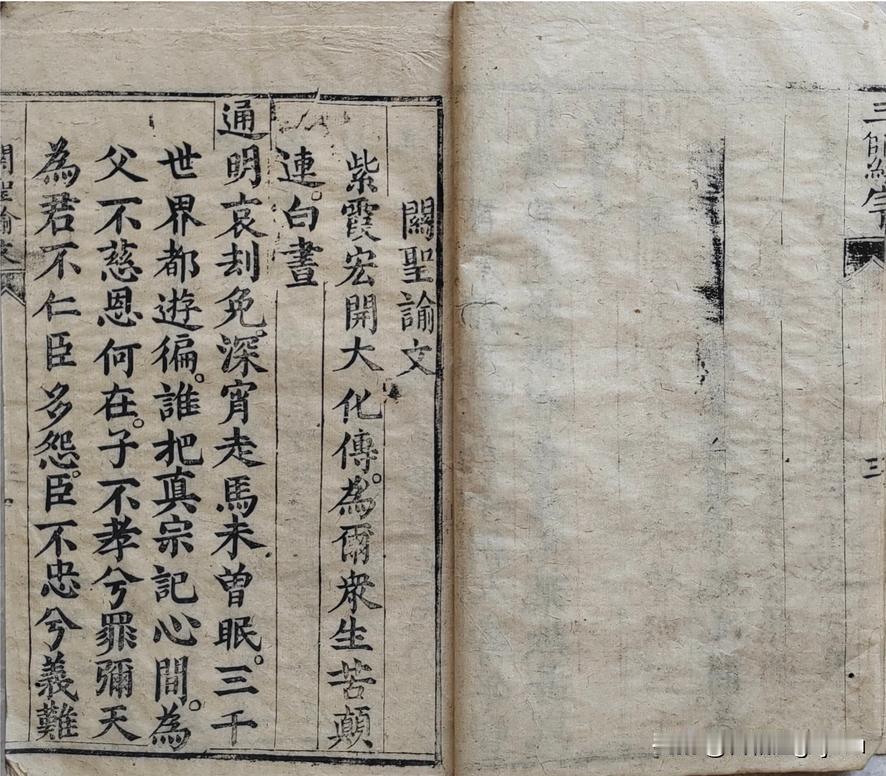 三
關聖諭文
紫霞宏開大化傳。為爾衆生苦顛
連。白晝
通明哀刦免。深宵走馬未曾眠。三千
世界都遊徧。誰把真宗記心間。為
父不慈恩何在。子不孝兮罪彌天
為君不仁臣多怨。臣不忠兮義難
關聖諭文